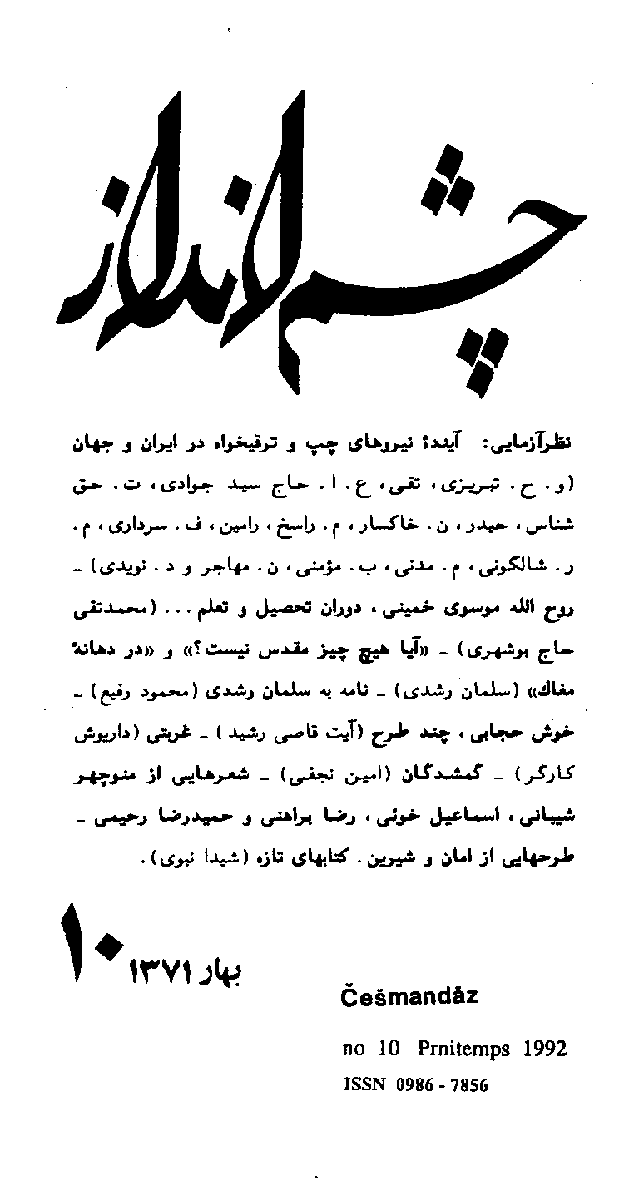 چشم‌انداز
نظرآزمایی: آیندهٔ نیروهای چپ و ترقیخواه در ایران و جهان
(و . ح . تبریزی ، تقی ، ع . ا . حاج سید جوادی ، ت . حق
شناس ، حیدر ، ن . خاکسار ، م . راسخ ، رامین ، ف . سرداری ، م .
ر . شالگونی ، م . مدنی ، ب . مؤمنی ، ن . مهاجر و د . نویدی) ـ
روح الله موسوی خمینی ، دوران تحصیل و تعلم ... (محمدتقی
حاج بوشهری) ـ «آیا هیچ چیز مقدس نیست؟» و «در دهانهٔ
مغاک» (سلمان رشدی) ـ نامه به سلمان رشدی (محمود رفیع) ـ
خوش حجابی ، چند طرح (آیت قاصی رشید) ـ غربتی (داریوش
کارگر) ـ گمشدگان (امین نجفی) ـ شعرهایی از منوچهر
شیبانی ، اسماعیل خوئی ، رضا براهنی و حمیدرضا رحیمی ـ
طرحهایی از امان و شیرین . کتابهای تازه (شیدا نبوی) .
۱۰
بهار ۱۳۷۱
Češmandâz
no 10 Prnitemps 1992
ISSN 0986 - 7856